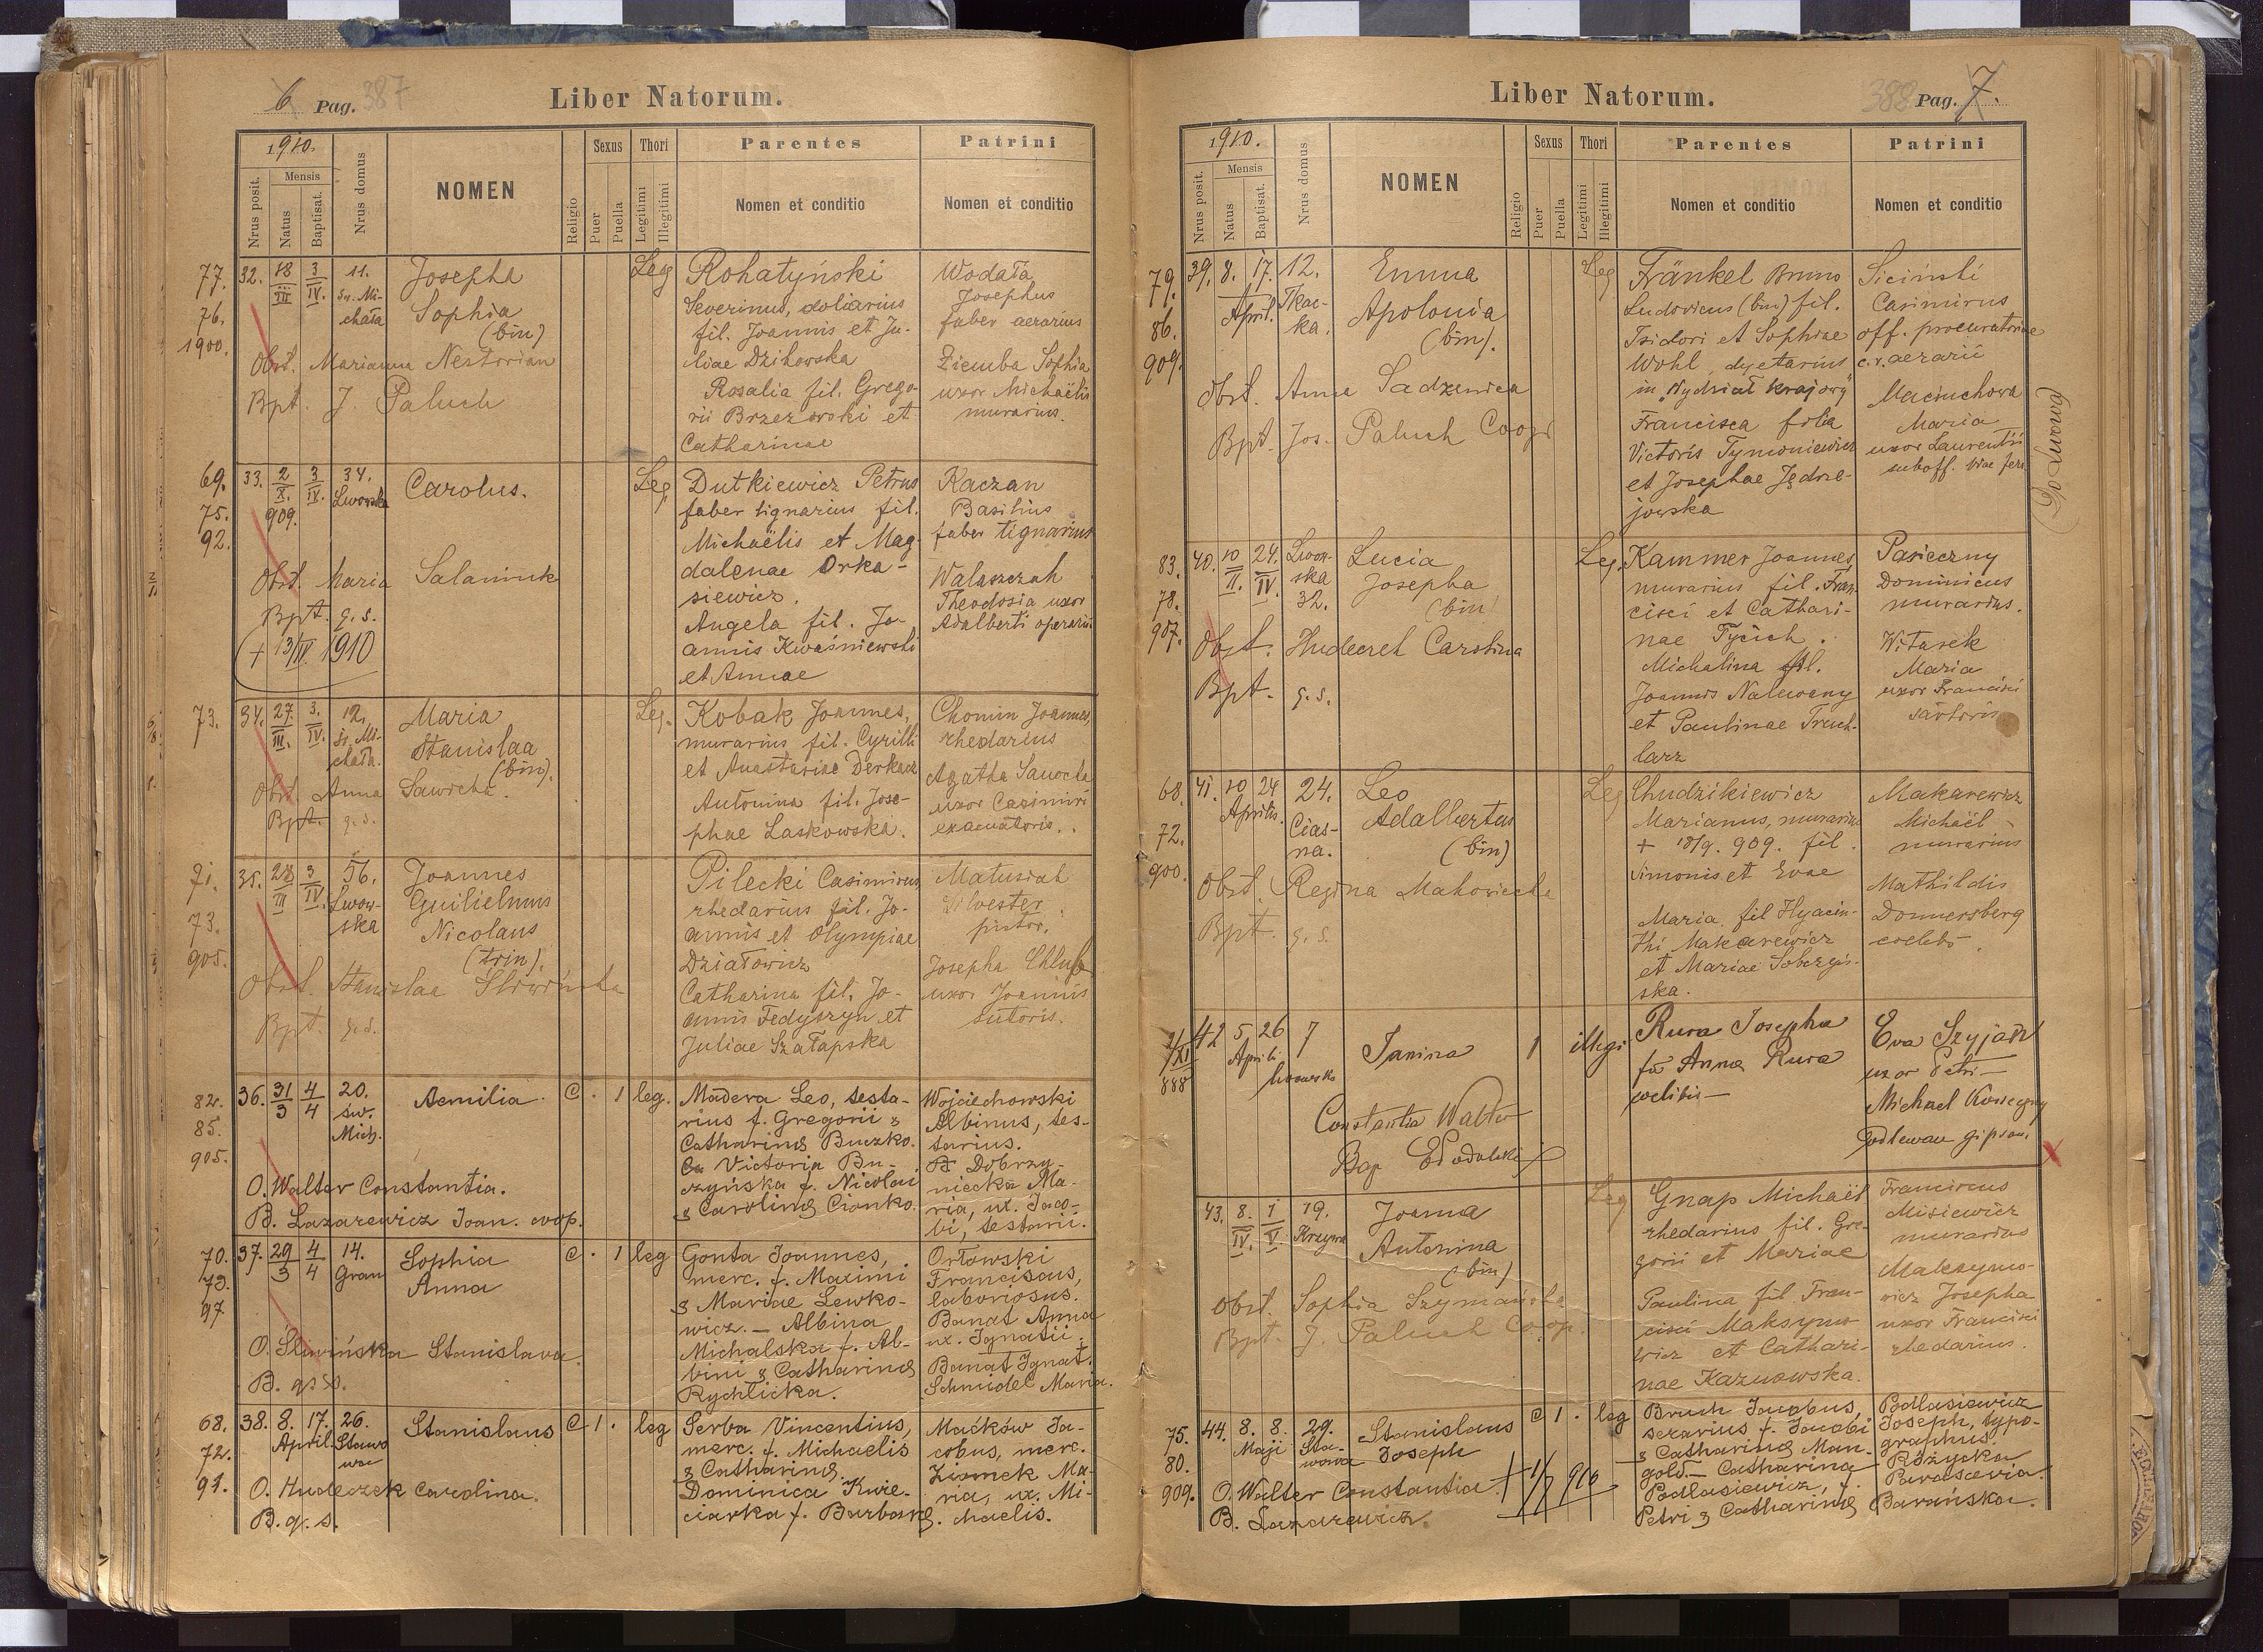 6 Pag. 387
Liber Natorum.
1910.
Nrus posit.
Mensis
Natus
Baptisat.
Nrus domus
NOMEN
Religio
Sexus
Puer
Puella
Thori
Legitimi
Illegitimi
Parentes
Nomen et conditio
Patrini
Nomen et conditio
77.
76.
1900.
32. 18/III 3/IV. 11.
Św. Mi-
chała
Josepha
Sophia
(bin)
Obst. Marianna Nestorian
Bpt. J. Paluch
Leg
Rohatyński
Severinus, doliarius
fil. Joannis et Ju-
liae Dzikowska
Rosalia fil. Grego-
rii Brzezowski et
Catharinae
Wodała
Josephus
faber aerarius
Ziemba Sophia
uxor Michaëlis
murarius.
69.
75.
92.
33. 2/X. 909. 3/IV. 34.
Lwowska
Carolus.
Obst. Maria Salaniuk
Bpt. q. s.
(+ 13/IV. 1910
Leg
Dutkiewicz Petrus
faber lignarius fil.
Michaëlis et Mag-
dalenae Orka-
siewicz.
Angela fil. Jo-
annis Kwaśniewski
et Annae
Kaczan
Basilius
faber tignarius
Walaszczak
Theodosia uxor
Adalberti operarii
73.
34. 27/III. 3./IV. 12.
św. Mi-
chała.
Maria
Stanislaa
(bin).
Obst. Anna Sawicka.
Bpt. q. s.
Leg.
Kobak Joannes,
murarius fil. Cyrilli
et Anastasiae Derkacz
Antonina fil. Jose-
phae Laskowska.
Chomin Joannes,
rhedarius
Agatha Sanocka
uxor Casimiri
exacuatoris.
71.
73.
905.
35. 28/III 3/IV. 56.
Lwow-
ska
Joannes
Guilielmus
Nicolaus
(trin).
Obst. Stanislaa Śliwińska
Bpt. q. s.
Pilecki Casimirus
rhedarius fil. Jo-
annis et Olympiae
Działowicz
Catharina fil. Jo-
annis Fedyszyn et
Juliae Szałapska
Matusiak
Silvester
pistor.
Josepha Chlub
uxor Joannis
sutoris.
82.
85.
905.
36. 31/3 4/4 20.
św.
Mich.
Aemilia
C · 1 leg.
O. Walter Constantia.
B. Lazarewicz Joan. coop.
Madera Leo, testa-
rius f. Gregorii &
Catharinæ Buczko.
Ca Victoria Bu-
czyńska f. Nicolai
& Carolinæ Cionko.
Wojciechowski
Albinus, tes-
tarius.
B. Dobrzy-
niecka Ma-
ria, ux. Jaco-
bi, testarii.
70.
73.
97
37. 29/3 4/4 14.
Gran
Sophia
Anna
C · 1 leg
O. Śliwińska Stanislava
B. q. s.
Gonta Joannes,
merc. f. Maximi
& Mariae Lewko-
wicz. — Albina
Michalska f. Al-
bini & Catharinæ
Rychlicka.
Orłowski
Franciscus,
laboriosus.
Banat Anna
ux. Ignatii
Banat Ignat.
Schmidel Maria.
68.
72.
91.
38. 8. 17. 26.
April. Stawo
wa
Stanislaus
C 1 · leg
O. Hudeczek Carolina.
B. q. s.
Serba Vincentius,
merc. f. Michaelis
& Catharinæ.
Dominica Kwie-
ciarka f. Barbaræ.
Maćków Ja-
cobus, merc.
Ziomek Ma-
ria, ux. Mi-
chaelis.
Liber Natorum.
388 Pag. 7.
1910.
Nrus posit.
Mensis
Natus
Baptisat.
Nrus domus
NOMEN
Religio
Sexus
Puer
Puella
Thori
Legitimi
Illegitimi
Parentes
Nomen et conditio
Patrini
Nomen et conditio
79.
86.
909.
39. 8. 17. 12.
April. Tkac-
ka.
Emma
Apolonia
(bin).
Obst. Anna Sadzenica
Bpt. Jos. Paluch Coop
Leg
Fränkel Bruno
Ludovicus (bin) fil.
Isidori et Sophiae
Wohl, dyetarius
in „Wydział krajowy"
Francisca filia
Victoris Tymoniewicz
et Josephae Jędrze-
jowska
Siciński
Casimirus
off. procuratoriae
c. r. aerarii
Maciuchowa
Maria
uxor Laurentii
suboff. viae ferr.
(Do Lwowa)
83.
78.
907.
40. 10/II. 24./IV. Lwow-
ska
32.
Lucia
Josepha
(bin)
Obst. Hudeczek Carolina
Bpt. q. s.
Leg.
Kammer Joannes
murarius fil. Fran-
cisci et Cathari-
nae Tycich.
Michalina fil.
Joannis Nalewany
et Paulinae Truch-
larz
Pasieczny
Dominicus
murarius.
Witasek
Maria
uxor Francisci
sartoris
68.
72.
900.
41. 10 24 24.
Aprilis. Cias-
na.
Leo
Adalbertus
(bin)
Obst. Regina Makowiecka
Bpt. q. s.
Leg
Chudzikiewicz
Marianus, murarius
+ 18/9. 909. fil.
Simonis et Evae
Maria fil Hyacin-
thi Makarewicz
et Mariae Sobczyń-
ska.
Makarewicz
Michaël
murarius
Mathildis
Donnersberg
coelebs.
1/XI
888
42 5 26 7
Aprili Lwowska
Janina
1 illegi
Constantia Walter
Bap
Rura Josepha
fa Anna Rura
coelibis —
Eva Szyjan
uxor Petri —
Michael
gipsan.
43. 8./IV. 1/V. 19.
Krzywa
Joanna
Antonina
(bin)
Obst. Sophia Szymańska
Bpt. J. Paluch Coop.
Leg
Gnap Michaël
rhedarius fil. Gre-
gorii et Mariae
Paulina fil. Fran-
cisci Maksymo-
wicz et Cathari-
nae Kazuowska.
Franciscus
Misiewicz
murarius
Maksymo-
wicz Josepha
uxor Francisci
rhedarius.
75.
80.
909.
44. 8. 8. 29.
Maji Sta-
wowa
Stanislaus
Joseph
C 1 · leg
O. Walter Constantia + 1/7 910
B. Lazarewicz.
Bruch Jacobus,
serarius f. Jacobi
& Catharinæ Man-
gold. — Catharina
Podlasiewicz, f.
Petri & Catharinæ
Podlasiewicz
Joseph, typo-
graphus.
Różycka
Parascevia.
Barańska.